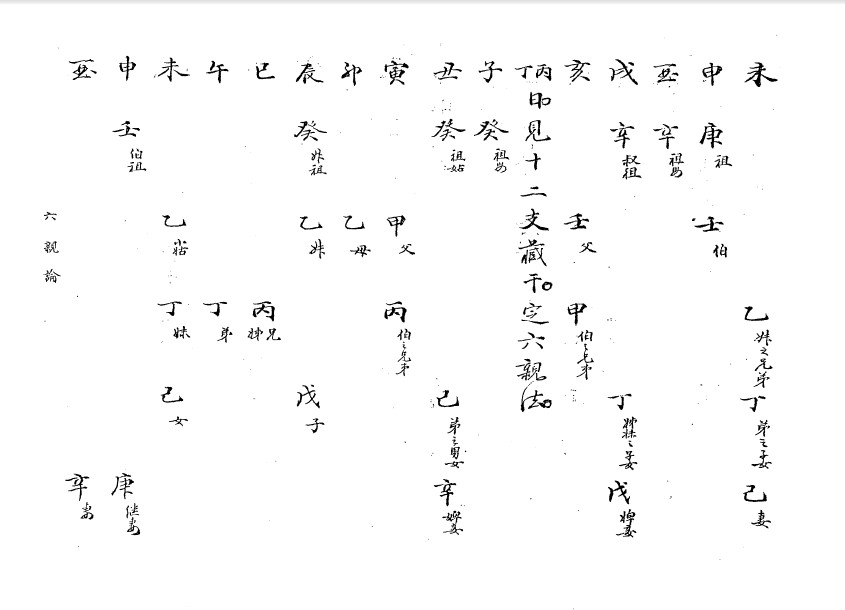 未 乙 之兄弟 丁 弟之子女 己 妻
申 庚 祖 壬 伯
酉 辛 祖母
戌 辛 叔祖 丁 姊妹之子女 戊
亥 壬 父 甲 伯之兄弟
丙丁日見十二支藏干。定六親法。
子 癸 祖母
丑 癸 祖姑 己 弟之男女 辛 婢妾
寅 甲 父 丙 伯之兄弟
卯 乙 母
辰 癸 祖 乙 戊 子
巳 丙 兄姊
午 丁 弟
未 乙 丁 妹 己 女
申 壬 伯祖 庚 继妻
酉 辛 妻
六親論